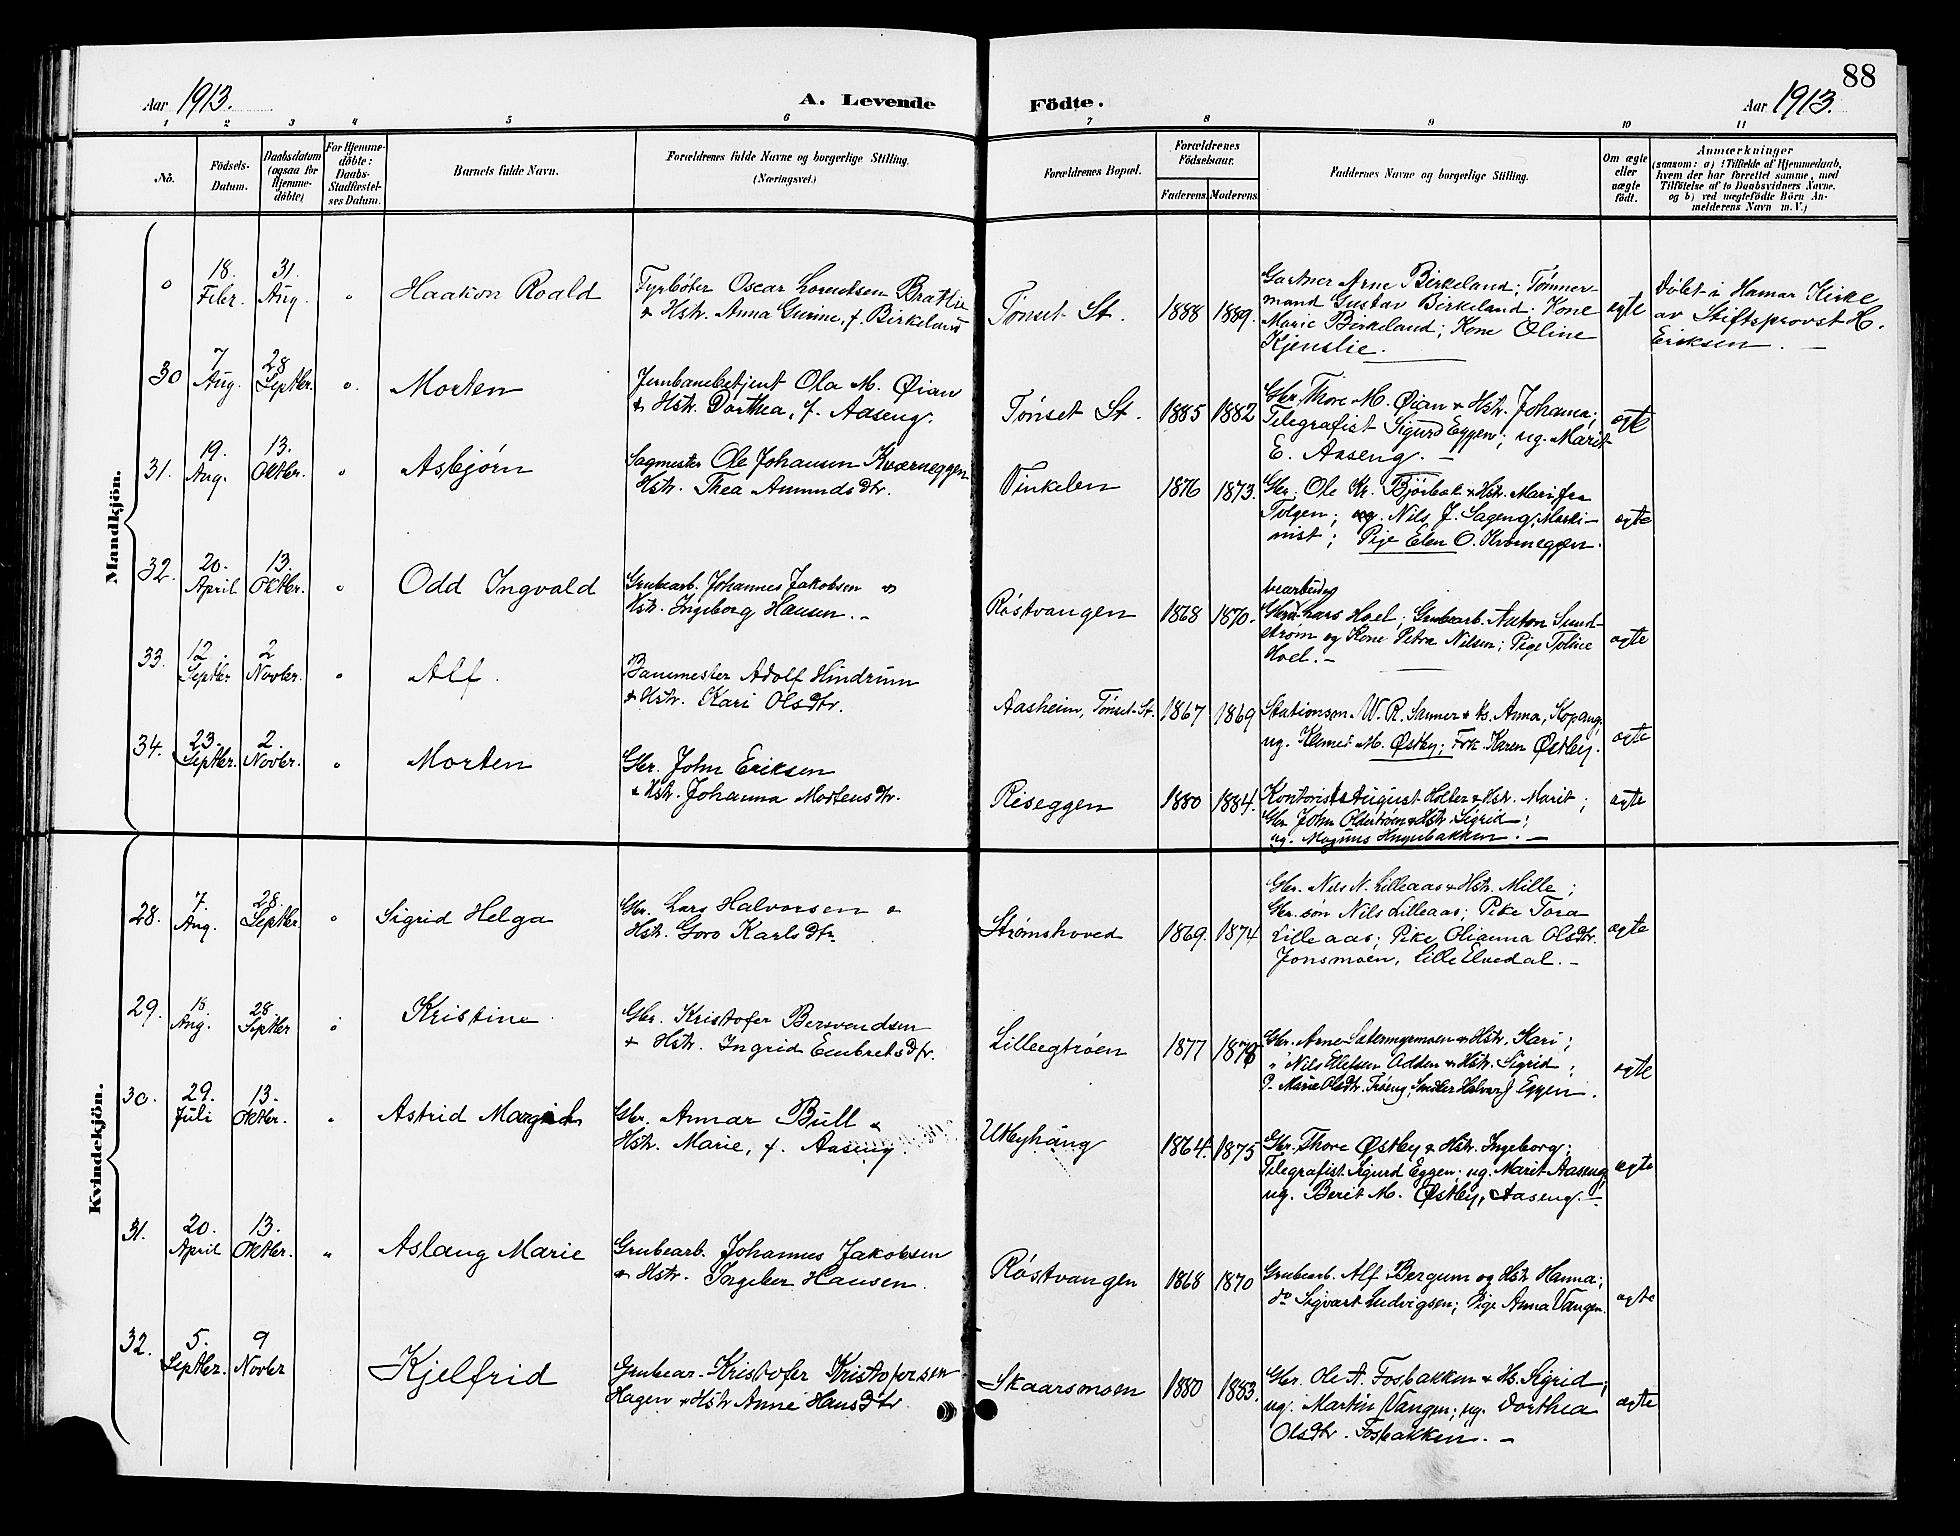 88
Aar 1913.
A. Levende Födte.
Aar 1913.
1 2 3 4 5 6 7 8 9 10 11
No.
Födsels-Datum.
Daabsdatum (ogsaa for Hjemme-döbte)
For Hjemme-döbte: Daabs-Stadfæstel-ses Datum.
Barnets fulde Navn.
Forældrenes fulde Navne og borgerlige Stilling. (Næringsvei.)
Forældrenes Bopæl.
Forældrenes Födselsaar.
Faderens. Moderens.
Faddernes Navne og borgerlige Stilling.
Om ægte eller uægte födt.
Anmærkninger
(saasom: a) i Tilfælde af Hjemmedaab,
hvem der har forrettet samme, med
Tilföielse af to Daabsvidners Navne.
og b) ved uægtefödte Börn An-
melderens Navn m. V.)
Mandkjön.
18. Febr. 31. Aug. Haakon Roald
Fyrbøter Oscar Lorentsen Bratlie
& Hstr. Anna Gurine, f. Birkeland
Tønset St. 1888 1889.
Gartner Arne Birkeland; Tømmer-
mand Gustav Birkeland. Kone
Marie Birkeland; Kone Oline
Kjenslie.
ægte
Døbt i Hamar Kirke
av Stiftsprovst H.
Eriksen.
30 7 Aug. 28 Septbr. Morten
Jernbanebetjent Ola M. Øian
& Hstr. Dorthea, f. Aaseng.
Tønset St. 1885 1882
Gbr. Thore M. Øian & Hstr. Johanna;
Telegrafist Sigurd Eggen; ug. Marit
E. Aaseng.
ægte
31. 19. Aug. 13. Oktbr. Asbjørn
Sagmester Ole Johansen Kværneggen
Hstr. Thea Amundsdtr.
Vinkelen 1876 1873.
Gbr. Ole Kr. Bjørbak & Hstr. Mari fra
Tolgen; ug. Nils J. Sageng, Maski-
nist; Pige Elen O. Kværneggen.
ægte
32. 20. April 13. Oktbr. Odd Ingvald
Grubearb. Johannes Jakobsen &
Hstr. Ingeborg Hansen.
Røstvangen 1868 1870.
Lars Hoel; Grubearb. Anton Sund-
strøm og Kone Petra Nilsen; Pige Toline
Hoel.
ægte
33. 12. Septbr 2 Novbr. Alf.
Banmester Adolf Hindrum
& Hstr. Kari Olsdtr.
Aasheim, Tønset St. 1867 1869
Stationsm. W. R. Sanner & Hs. Anna, Kopang;
ug. Klemet M. Østby; Frk. Karen Østby.
ægte
34. 23. Septbr. 2. Novbr. Morten
Gbr. John Eriksen
& Hstr. Johanna Mortensdtr.
Riseggen 1880 1884.
Kontorist August Holter & Hstr. Marit;
Gbr. John Oldertrøen & Hstr. Sigrid;
ug. Magnus
ægte
Kvindekjön.
28. 7. Aug. 28. Septbr. Sigrid Helga
Gbr. Lars Halvorsen &
Hstr. Goro Karlsdtr.
Strømshoved 1869. 1874
Gbr. Nils N. Lilleaas & Hstr. Mille;
Gbr. søn Nils Lilleaas; Pike Tora
Lilleaas; Pike Olianna Olsdtr.
Jonsmoen, Lille Elvedal.
ægte
29. 18 Aug. 28. Septbr Kristine
Gbr. Kristofer Bersvendsen
& Hstr. Ingrid Embretsdtr.
Lilleegtrøen 1877 1878
Gbr. Arne Sætermyrmoen & Hstr. Kari;
" Nils Ellefsen Odden & Hstr. Sigrid;
P. Marie Olsdtr. Trøeng, Snekker Halvor J Eggen.
ægte
30. 29. Juli 13. Oktbr. Astrid Margith
Gbr. Annar Bull &
Hstr. Marie, f. Aaseng.
Utbyhaug 1864. 1875
Gbr. Thore Østby & Hstr. Ingeborg;
Telegrafist Sigurd Eggen; ug. Marit Aaseng,
ug. Berit M. Østby, Aaseng.
ægte
31. 20. April 13. Oktbr. Aslaug Marie
Grubearb. Johannes Jakobsen
& Hstr. Ingeber Hansen.
Røstvangen 1868 1870
Grubearb. Alf Bergum og Hstr Hanna;
do Sigvart Ludvigsen; Pige Anna Vangen.
ægte
32. 5. Septbr. 9 Novbr Kjelfrid
Grubear. Kristofer Kristofersen
Hagen & Hstr Anne Hansdtr
Skaarsmoen 1880 1883.
Gbr. Ole A. Fosbakken & Hs. Sigrid;
ug. Martin Vangen; ug. Dorthea
Olsdtr. Fosbakken.
ægte